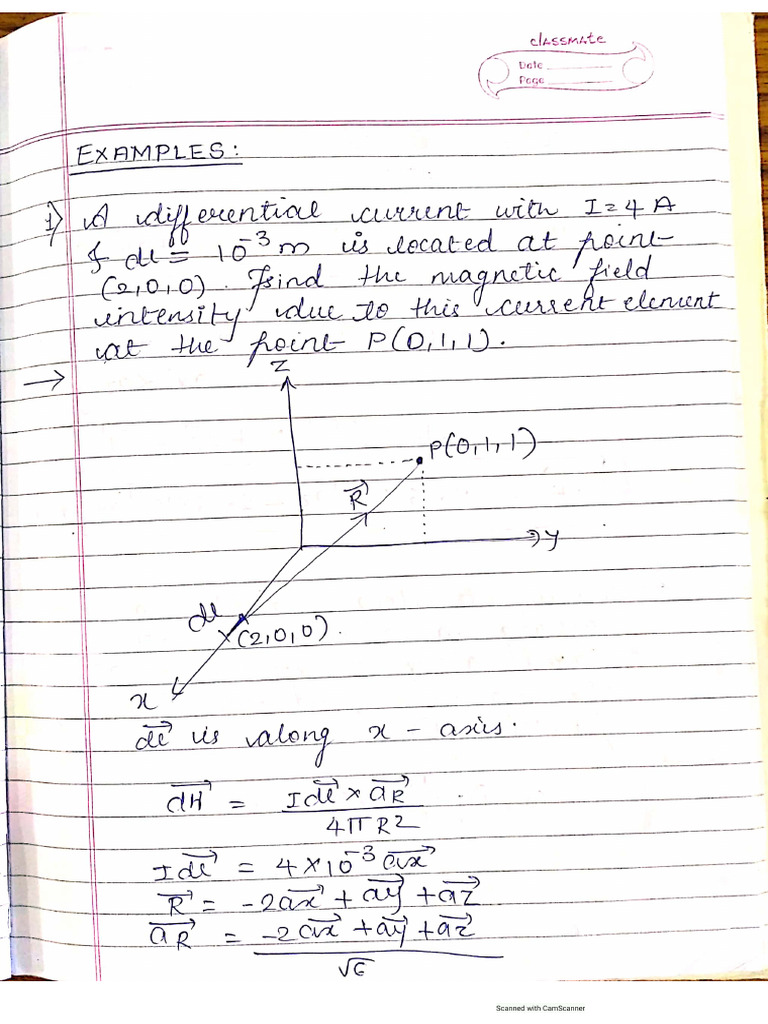 classmate
Date
Page
EXAMPLES:
1) A differential current with I=4 A
& dl = 10⁻³ m is located at point
(2,0,0). Find the magnetic field
intensity due to this current element
at the point P(0,1,1).
→
z
P(0,1,1)
R⃗
y
dl
(2,0,0).
x
dl⃗ is along x-axis.
dH⃗ = I dl⃗ × a⃗R
4π R²
I dl⃗ = 4×10⁻³ a⃗x
R⃗ = -2a⃗x + a⃗y + a⃗z
a⃗R = -2a⃗x + a⃗y + a⃗z
√6
Scanned with CamScanner